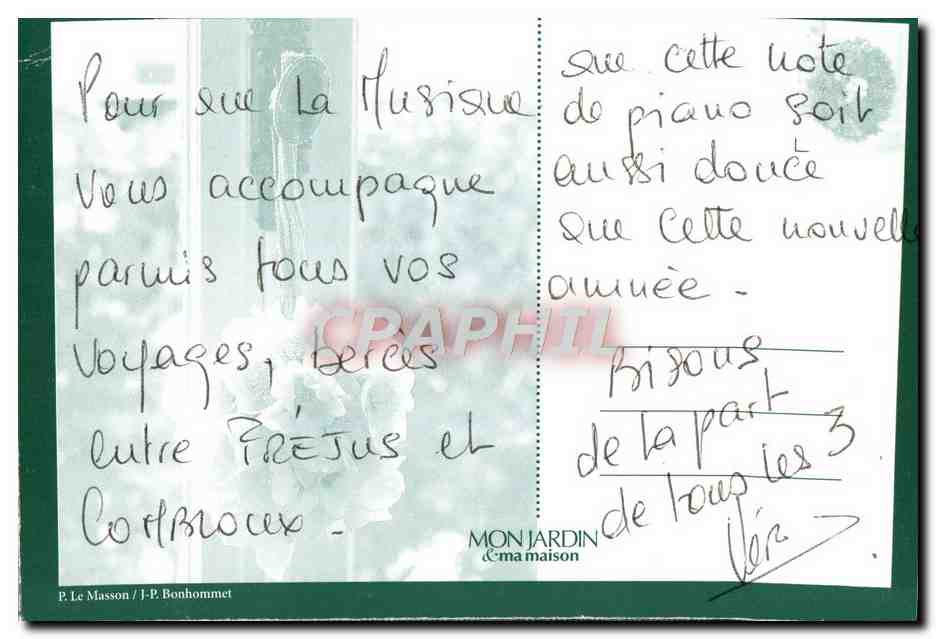 Pour que La Musique
vous accompagne
parmis tous vos
voyages, bercès
entre FRÉJUS et
COMBROUX.
que cette note
de piano soit
aussi doucè
que cette nouvelle
année.
Bisous
de la part
de tous les 3
Vér
CPAPHIL
MON JARDIN
& ma maison
P. Le Masson / J-P. Bonhommet